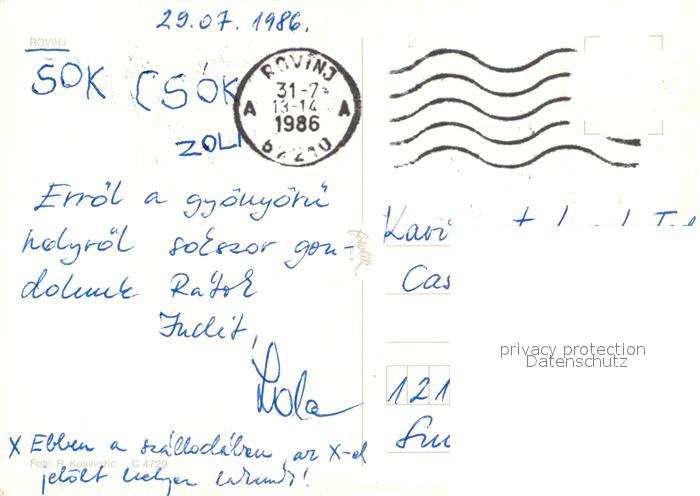 29.07.1986.
ROVINJ
SOK CSÓK
ZOLI
ROVINJ
31-7
13-14
A A
1986
52210
Erről a gyönyörű
helyről sokszor gon-
dolunk Rátok
Judit,
Lola
X Ebben a szállodában az X-el
jelölt helyen lakunk!
Foto: R. Kosinožic C 4729
privacy protection
Datenschutz
Cas
121